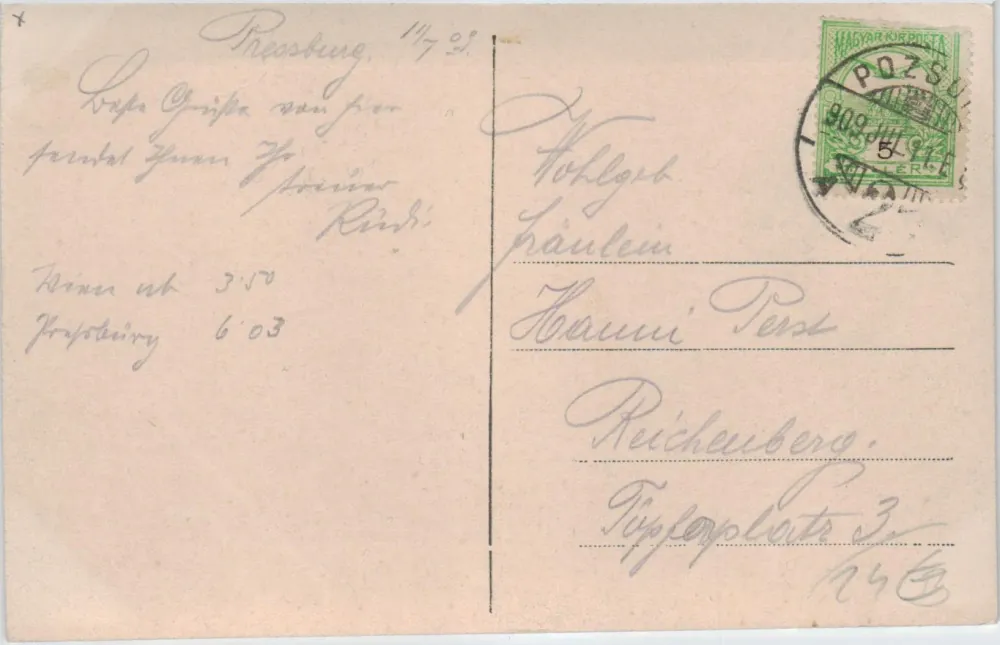 Pressburg. 11/7 09.
Beste Grüße von hier
sendet Ihnen Ihr
treuer
Rudi.
Wien ab 3·50
Preßburg 6 03
MAGYAR KIR. POSTA
POZSO
909 JUL 11. E
5
2
Wohlgeb
Fräulein
Hanni Perst
Reichenberg.
Töpferplatz 3